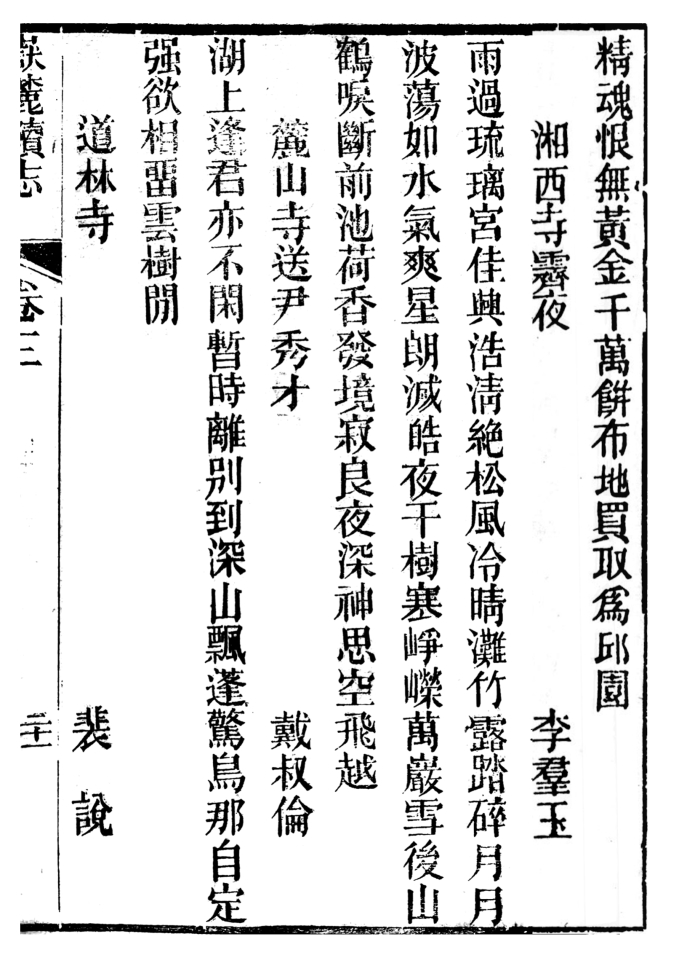 精魂恨無黃金千萬餅布地買取爲邱園
湘西寺霽夜 李羣玉
雨過琉璃宮佳興浩淸絶松風冷晴灘竹露踏碎月月
波蕩如水氣爽星朗滅皓夜千樹寒崢嶸萬巖雪後山
鶴唳斷前池荷香發境寂良夜深神思空飛越
麓山寺送尹秀才 戴叔倫
湖上逢君亦不閑暫時離別到深山飄蓬驚鳥那自定
强欲相畱雲樹閒
道林寺 裴說
嶽麓續志 卷二 二十一